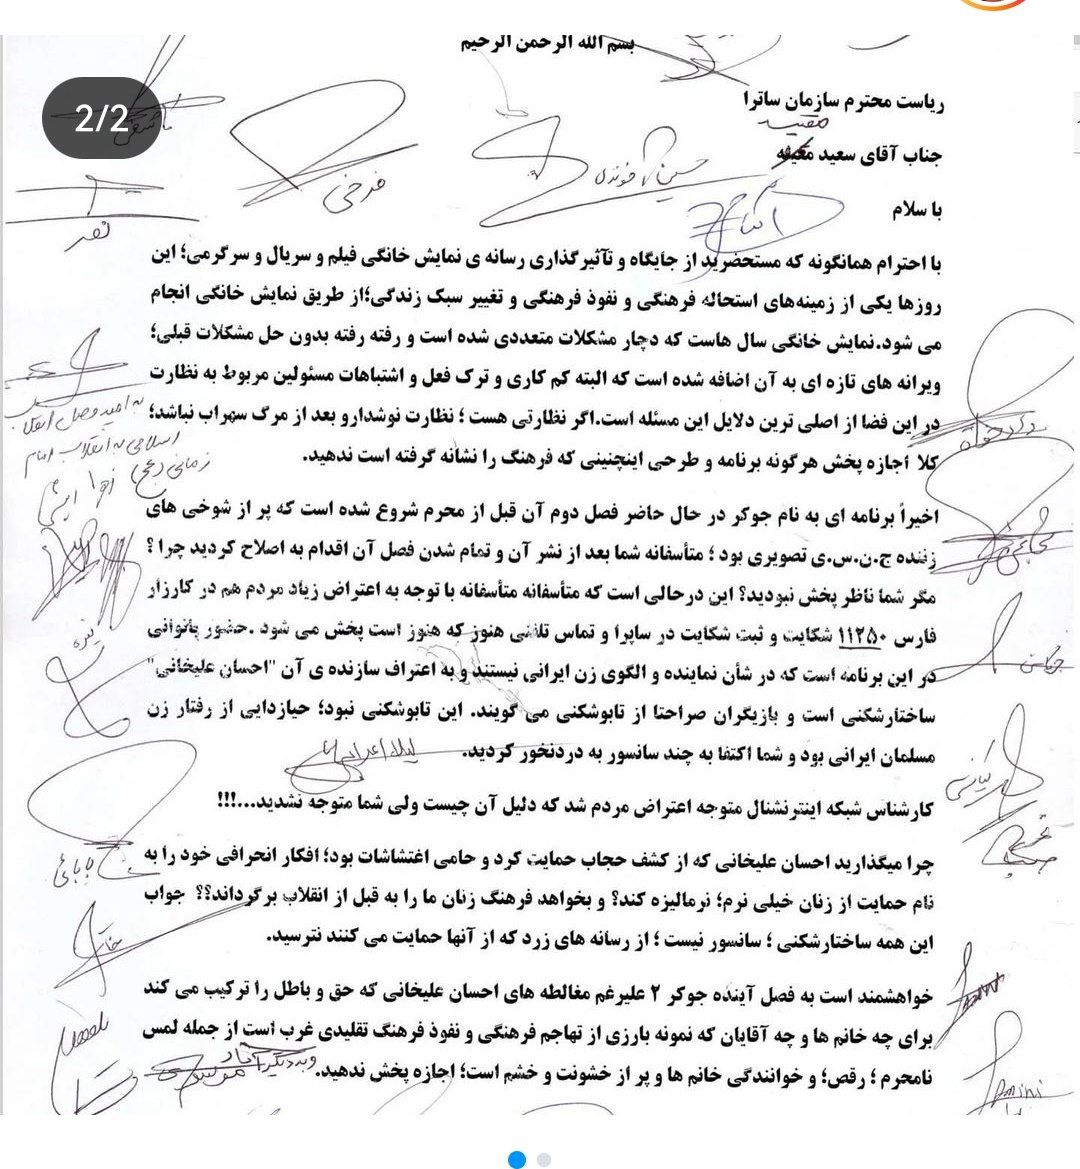 2/2
بسم الله الرحمن الرحیم
ریاست محترم سازمان ساترا
مقیسه
جناب آقای سعید
با سلام
با احترام همانگونه که مستحضرید از جایگاه و تآثیرگذاری رسانه ی نمایش خانگی فیلم و سریال و سرگرمی؛ این
روزها یکی از زمینه‌های استحاله فرهنگی و نفوذ فرهنگی و تغییر سبک زندگی؛از طریق نمایش خانگی انجام
می شود.نمایش خانگی سال هاست که دچار مشکلات متعددی شده است و رفته رفته بدون حل مشکلات قبلی؛
ویرانه های تازه ای به آن اضافه شده است که البته کم کاری و ترک فعل و اشتباهات مسئولین مربوط به نظارت
در این فضا از اصلی ترین دلایل این مسئله است.اگر نظارتی هست ؛ نظارت نوشدارو بعد از مرگ سهراب نباشد؛
کلا اجازه پخش هرگونه برنامه و طرحی اینچنینی که فرهنگ را نشانه گرفته است ندهید.
اخیراً برنامه ای به نام جوکر در حال حاضر فصل دوم آن قبل از محرم شروع شده است که پر از شوخی های
زننده ج.ن.س.ی تصویری بود ؛ متأسفانه شما بعد از نشر آن و تمام شدن فصل آن اقدام به اصلاح کردید چرا ؟
مگر شما ناظر پخش نبودید؟ این درحالی است که متأسفانه متأسفانه با توجه به اعتراض زیاد مردم هم در کارزار
فارس ۱۱۲۵۰ شکایت و ثبت شکایت در ساپرا و تماس تلفنی هنوز که هنوز است پخش می شود .حضور بانوانی
در این برنامه است که در شأن نماینده و الگوی زن ایرانی نیستند و به اعتراف سازنده ی آن "احسان علیخانی"
ساختارشکنی است و بازیگران صراحتا از تابوشکنی می گویند. این تابوشکنی نبود؛ حیازدایی از رفتار زن
مسلمان ایرانی بود و شما اکتفا به چند سانسور به دردنخور کردید.
کارشناس شبکه اینترنشنال متوجه اعتراض مردم شد که دلیل آن چیست ولی شما متوجه نشدید...!!!
چرا میگذارید احسان علیخانی که از کشف حجاب حمایت کرد و حامی اغتشاشات بود؛ افکار انحرافی خود را به
نام حمایت از زنان خیلی نرم؛ نرمالیزه کند؟ و بخواهد فرهنگ زنان ما را به قبل از انقلاب برگرداند؟؟ جواب
این همه ساختارشکنی ؛ سانسور نیست ؛ از رسانه های زرد که از آنها حمایت می کنند نترسید.
خواهشمند است به فصل آینده جوکر ۲ علیرغم مغالطه های احسان علیخانی که حق و باطل را ترکیب می کند
برای چه خانم ها و چه آقایان که نمونه بارزی از تهاجم فرهنگی و نفوذ فرهنگ تقلیدی غرب است از جمله لمس
نامحرم ؛ رقص؛ و خوانندگی خانم ها و پر از خشونت و خشم است؛ اجازه پخش ندهید.
فرخی
به امید وصل انقلاب
اسلامی به انقلاب امام
زمانی (عج)
بابائی
Amini